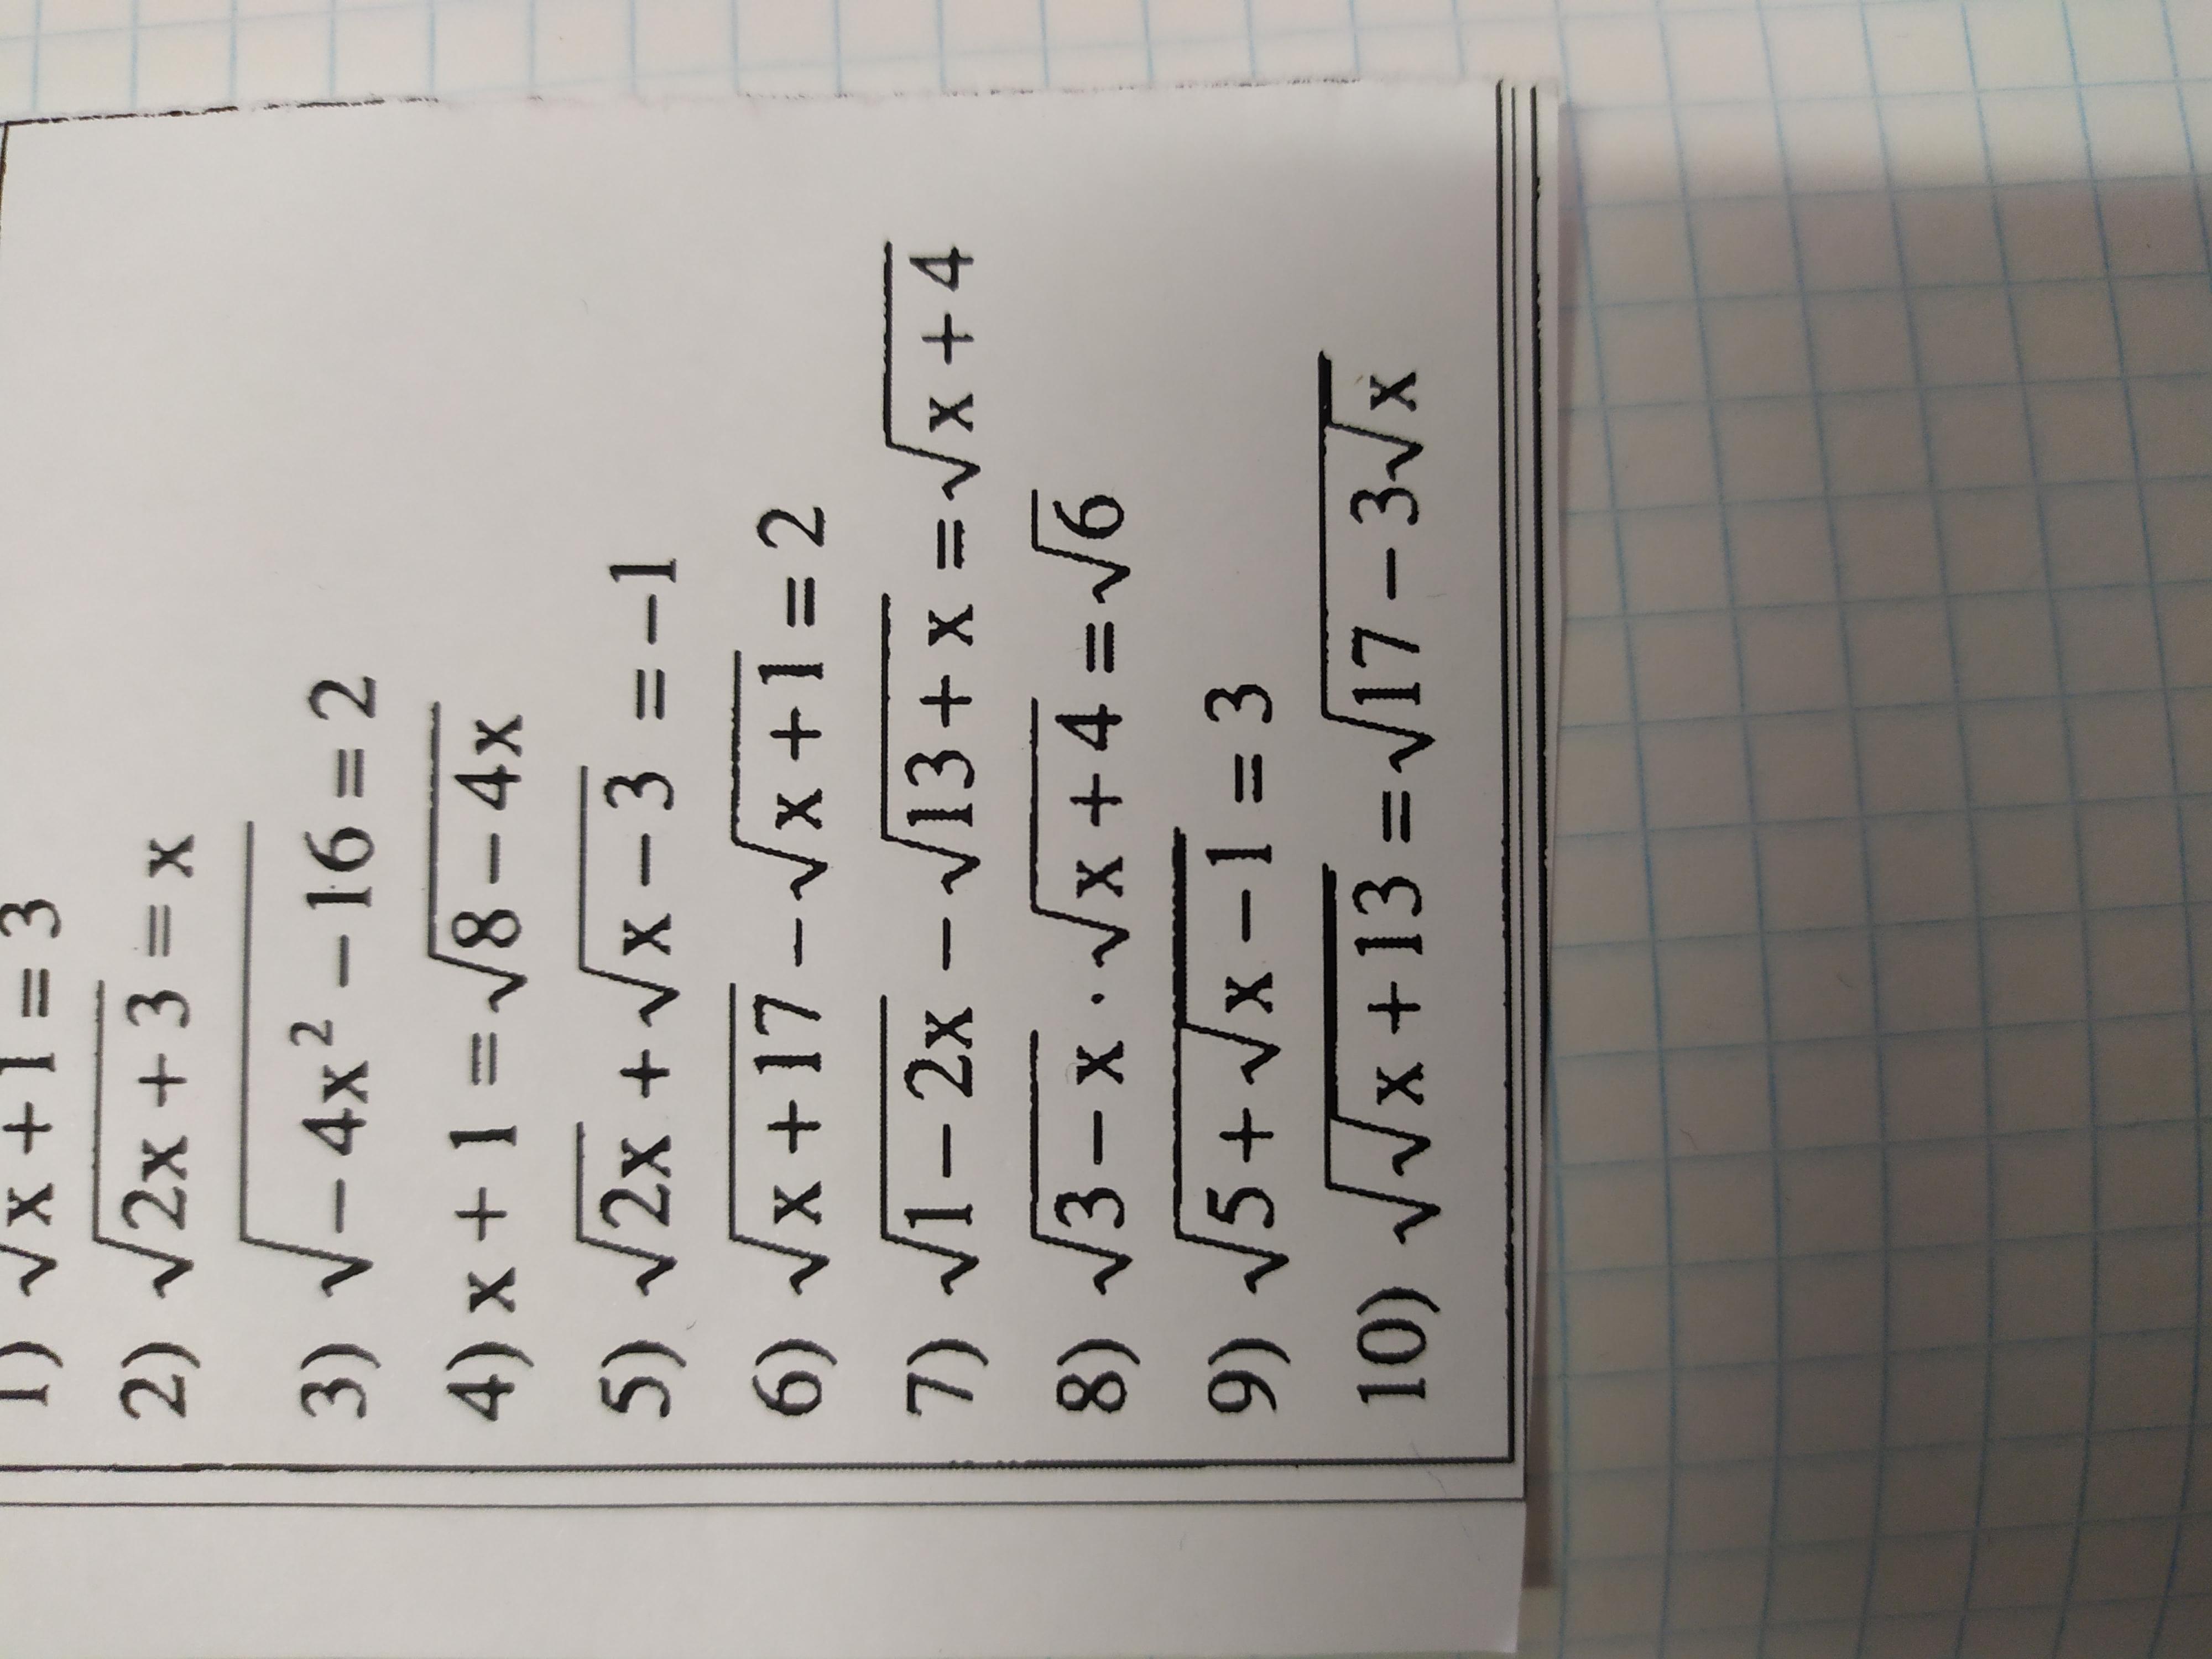 1) √x + 1 = 3
2) √(2x + 3) = x
3) √(− 4x² − 16) = 2
4) x + 1 = √(8 − 4x)
5) √(2x) + √(x − 3) = −1
6) √(x + 17) − √(x + 1) = 2
7) √(1 − 2x) − √(13 + x) = √(x + 4)
8) √(3 − x) · √(x + 4) = √6
9) √(5 + √(x − 1)) = 3
10) √(√(x + 13)) = √(17 − 3√x)